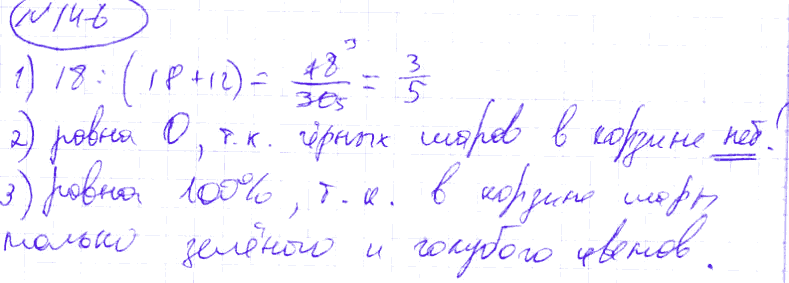 № 14-6
1) 18 : (18+12) = 18³/30₅ = 3/5
2) равна 0, т.к. чёрных шаров в корзине нет!
3) равна 100%, т.к. в корзине шары
только зелёного и голубого цветов.